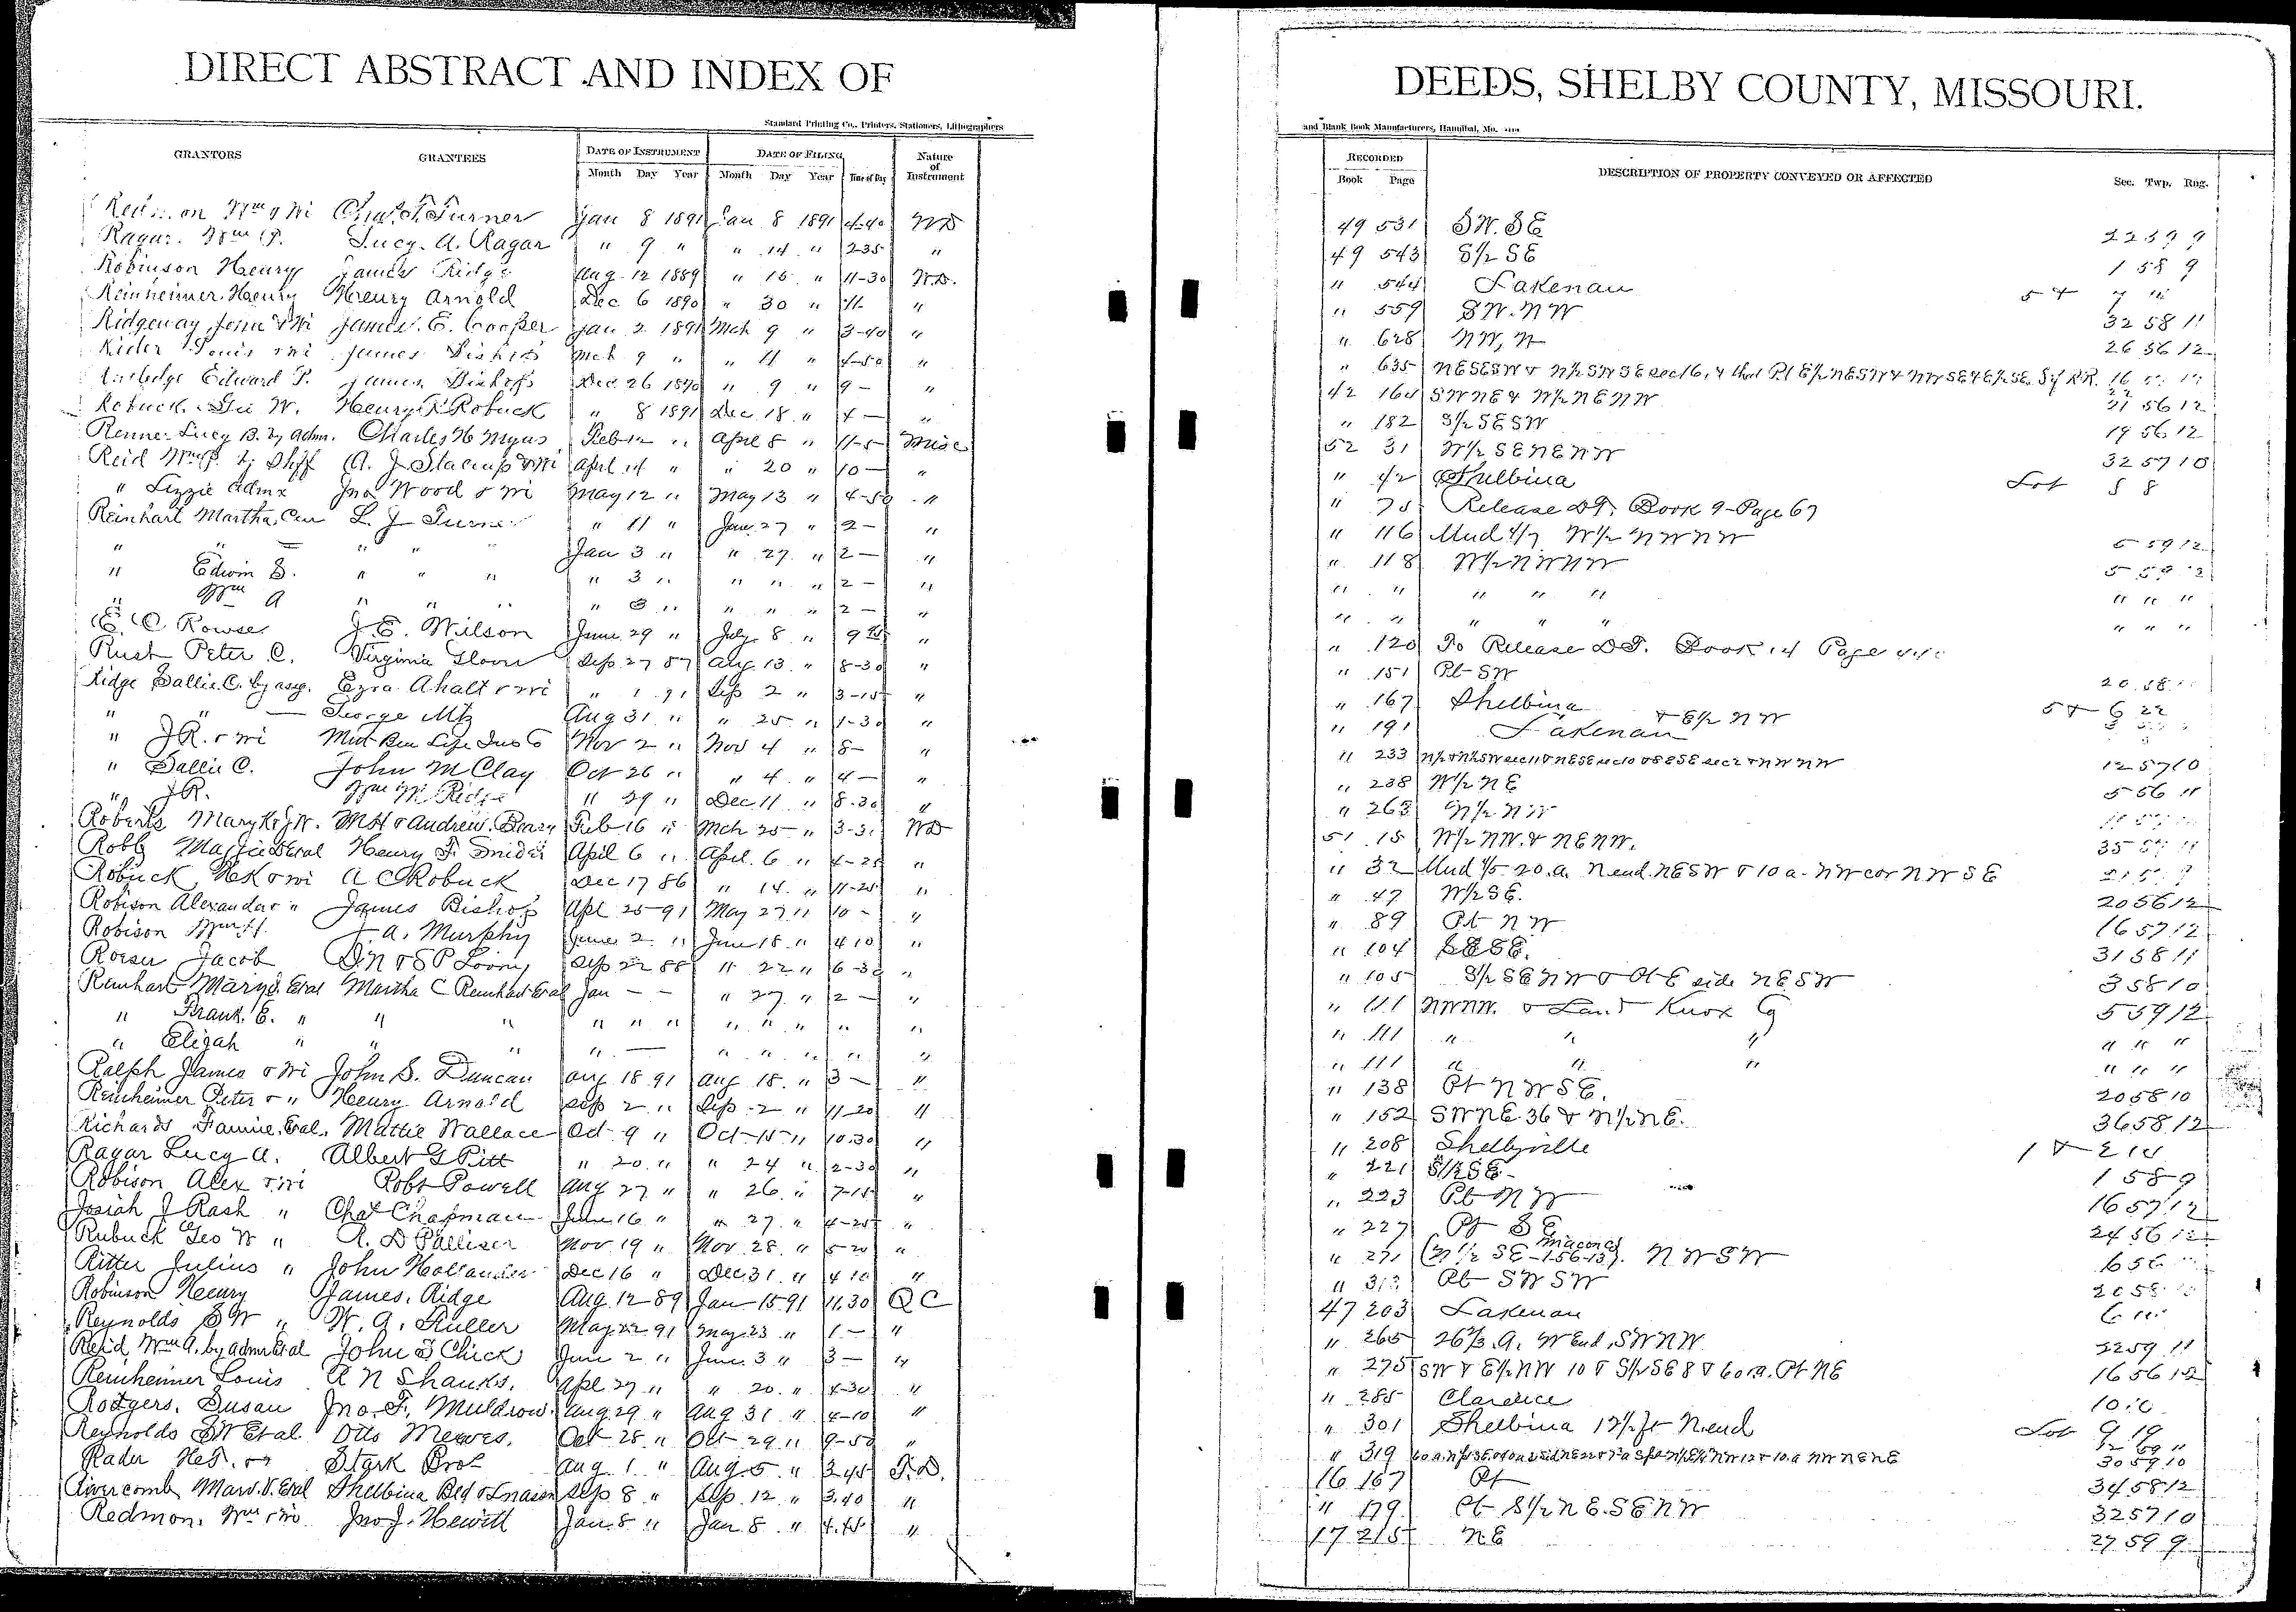 DIRECT ABSTRACT AND INDEX OF
Standard Printing Co., Printers, Stationers, Lithographers
GRANTORS GRANTEES DATE OF INSTRUMENT DATE OF FILING Nature of Instrument
Month Day Year Month Day Year Time of Day
Redmon Wm & Wi Chas. T. Turner Jan 8 1891 Jan 8 1891 4-40 WD
Ragar. Wm P. Lucy. A. Ragar " 9 " " 14 " 2-35 "
Robinson Henry James Ridge Aug 12 1889 " 15 " 11-30 W.D.
Reinheimer Henry Henry Arnold Dec 6 1890 " 30 " 11- "
Ridgeway John & Wi James. E. Cooper Jan 2 1891 Mch 9 " 3-40 "
Rider Louis & Wi James Bishop Mch 9 " " 11 " 4-50 "
Rutledge Edward P. James Bishop Dec 26 1890 " 9 " 9 - "
Robuck. Geo W. Henry K Robuck " 8 1891 Dec 18 " 4 - "
Renner Lucy B. by Adm. Charles H Myus Feb 12 " April 8 " 11-5 Misc
Reid Wm P. by Shff A. J. Stacup & Wi April 14 " " 20 " 10 - "
" Lizzie Admx Jno Wood & Wi May 12 " May 13 " 4-50 "
Reinhart Martha, Cur L. J Turner " 11 " June 27 " 2 - "
" " " " " Jan 3 " " 27. " 2 - "
" Edwin S. " " " " 3 " " " " 2 - "
" Wm A " " " " 3 " " " " 2 - "
E. C. Rowse J. E. Wilson June 29 " July 8 " 9 "
Rust Peter C. Virginia Sep 27 87 Aug 13 " 8-30 "
Ridge Sallie. C. by asg. Ezra Ahalt & Wi " 1 91 Sep 2 " 3-15 "
" " — George Aug 31 " " 25 " 1-30 "
" J.R. & Wi Mut Ben Life Ins Co Nov 2 " Nov 4 " 8- "
" Sallie C. John M Clay Oct 26 " " 4 " 4 - "
" J.R. Wm M Ridge " 29 " Dec 11 " 8.30 "
Roberts Mary K & J W. M H & Andrew Feb 16 " Mch 25 " 3-3 WD
Robb Maggie Etal Henry F. Snider April 6 " April 6 " 4-25 "
Robuck H K & Wi A C Robuck Dec 17 86 " 14. " 11-25 "
Robison Alexander " James Bishop Apl 25 91 May 27 " 10 - "
Robison Wm H. J. A. Murphy June 2 " June 18 " 4 10 "
Roeser Jacob D. N & S P Loony Sep 22 88 " 22 " 6-30 "
Reinhart Mary J. Etal Martha C Reinhart Etal Jan - - " 27 " 2 - "
" Frank. E. " " " " " " " " " " "
" Elijah " " " " — " " " " "
Ralph James & Wi John S. Duncan Aug 18 91 Aug 18. " 3 - "
Reinheimer Peter & " Henry Arnold Sep 2 " Sep 2 " 11-20 "
Richards Fannie. Etal. Mattie Wallace Oct 9 " Oct 15 " 10.30 "
Ragar Lucy A. Albert G Pitt " 20. " " 24 " 2-30 "
Robison Alex & Wi Robt Powell Aug 27 " " 26 " 7-15 "
Josiah J Rash " Chat Chapman June 16 " " 27. " 4-25 "
Rubuck Geo W " A. D Palliser Nov 19 " Nov. 28. " 5-20 "
Ritter Julius " John Hollander Dec 16 " Dec 31. " 4 10 "
Robinson Henry James. Ridge Aug. 12 89 Jan 15 91 11.30 QC
Reynolds S W " W. A. Fuller May 22 91 May 23 " 1 - "
Reid Wm A. by admr Etal John S Chick June 2 " June 3 " 3 - "
Reinheimer Louis A N Shanks. Apl 27 " " 20. " 4-30 "
Rodgers. Susan Jno. F. Muldrow. Aug 29 " Aug 31 " 4-10 "
Reynolds S W Etal Otto Mewes. Oct 28. " Oct 29 " 9-50 "
Rader H. T. & " Stark Bros Aug. 1 " Aug 5 " 3 45 T.D.
Rivercomb Marv. V. Etal Shelbina Bld & Loan Assn Sep 8 " Sep. 12 " 3.40 "
Redmon. Wm & Wi Jno J. Hewitt Jan. 8 " Jan. 8. " 4.45 "
DEEDS, SHELBY COUNTY, MISSOURI.
and Blank Book Manufacturers, Hannibal, Mo.
RECORDED DESCRIPTION OF PROPERTY CONVEYED OR AFFECTED Sec. Twp. Rng.
Book Page
49 531 SW. SE 22 59 9
49 543 S½ SE 1 58 9
" 544 Lakenan 5 &
" 559 SW. NW 32 58 11
" 628 NW, N 26 56 12
" 635 NESESW & N½ SW SE Sec 16, & that Pt E½ NESW & NWSE & E½ SE. S of RR. 16
42 164 SWNE & W½ NE NW 21 56 12
" 182 S½ SESW 19 56 12
52 31 W½ SENENW 32 57 10
" 42 Shelbina Lot 5 8
" 75 Release DT. Book 9-Page 67
" 116 Und 1/7 W½ NWNW 5 59 12
" 118 W½ NWNW 5 59 12
" " " " " " " "
" " " " " " " "
" 120 To Release D T. Book 14 Page
" 151 Pt SW 20 58
" 167 Shelbina 5 & 6 22
" 191 Lakenan & E½ NW
" 233 N½ & N½ SW Sec 11 & NESE Sec 10 & SESE Sec 2 & NWNW 12 57 10
" 238 W½ NE 5 56 11
" 263 N½ NW
51 15 W½ NW. & NENW. 35
" 32 Und 1/5 20.a. N end. NESW & 10 a. NW cor NW SE
" 47 W½ SE. 20 56 12
" 89 Pt NW 16 57 12
" 104 SESE. 31 58 11
" 105 S½ SENW & Pt E side NESW 3 58 10
" 111 NWNW. & Land Knox Co 5 59 12
" 111 " " " " " "
" 111 " " " " " "
" 138 Pt NWSE. 20 58 10
" 152 SWNE. 36 & N½ NE. 36 58 12
" 208 Shelbyville 1 & 2 14
" 221 S½ SE - 1 58 9
" 223 Pt NW 16 57 12
" 227 Pt SE 24 56 12
" 271 (N½ SE-1-56-13). Macon Co NWSW 6 56
" 313 Pt SWSW 20 58
47 203 Lakenan 6
" 265 26⅔.a. W End, SWNW 22 59 11
" 275 SW & E½ NW 10 & S½ SE 8 & 60 a. Pt NE 16 56 12
" 285 Clarence 10
" 301 Shelbina 12½ ft N.end Lot 9 19
" 319 30 59 10
16 167 Pt 34 58 12
" 179 Pt S½ NE. SENW 32 57 10
17 215 NE 27 59 9